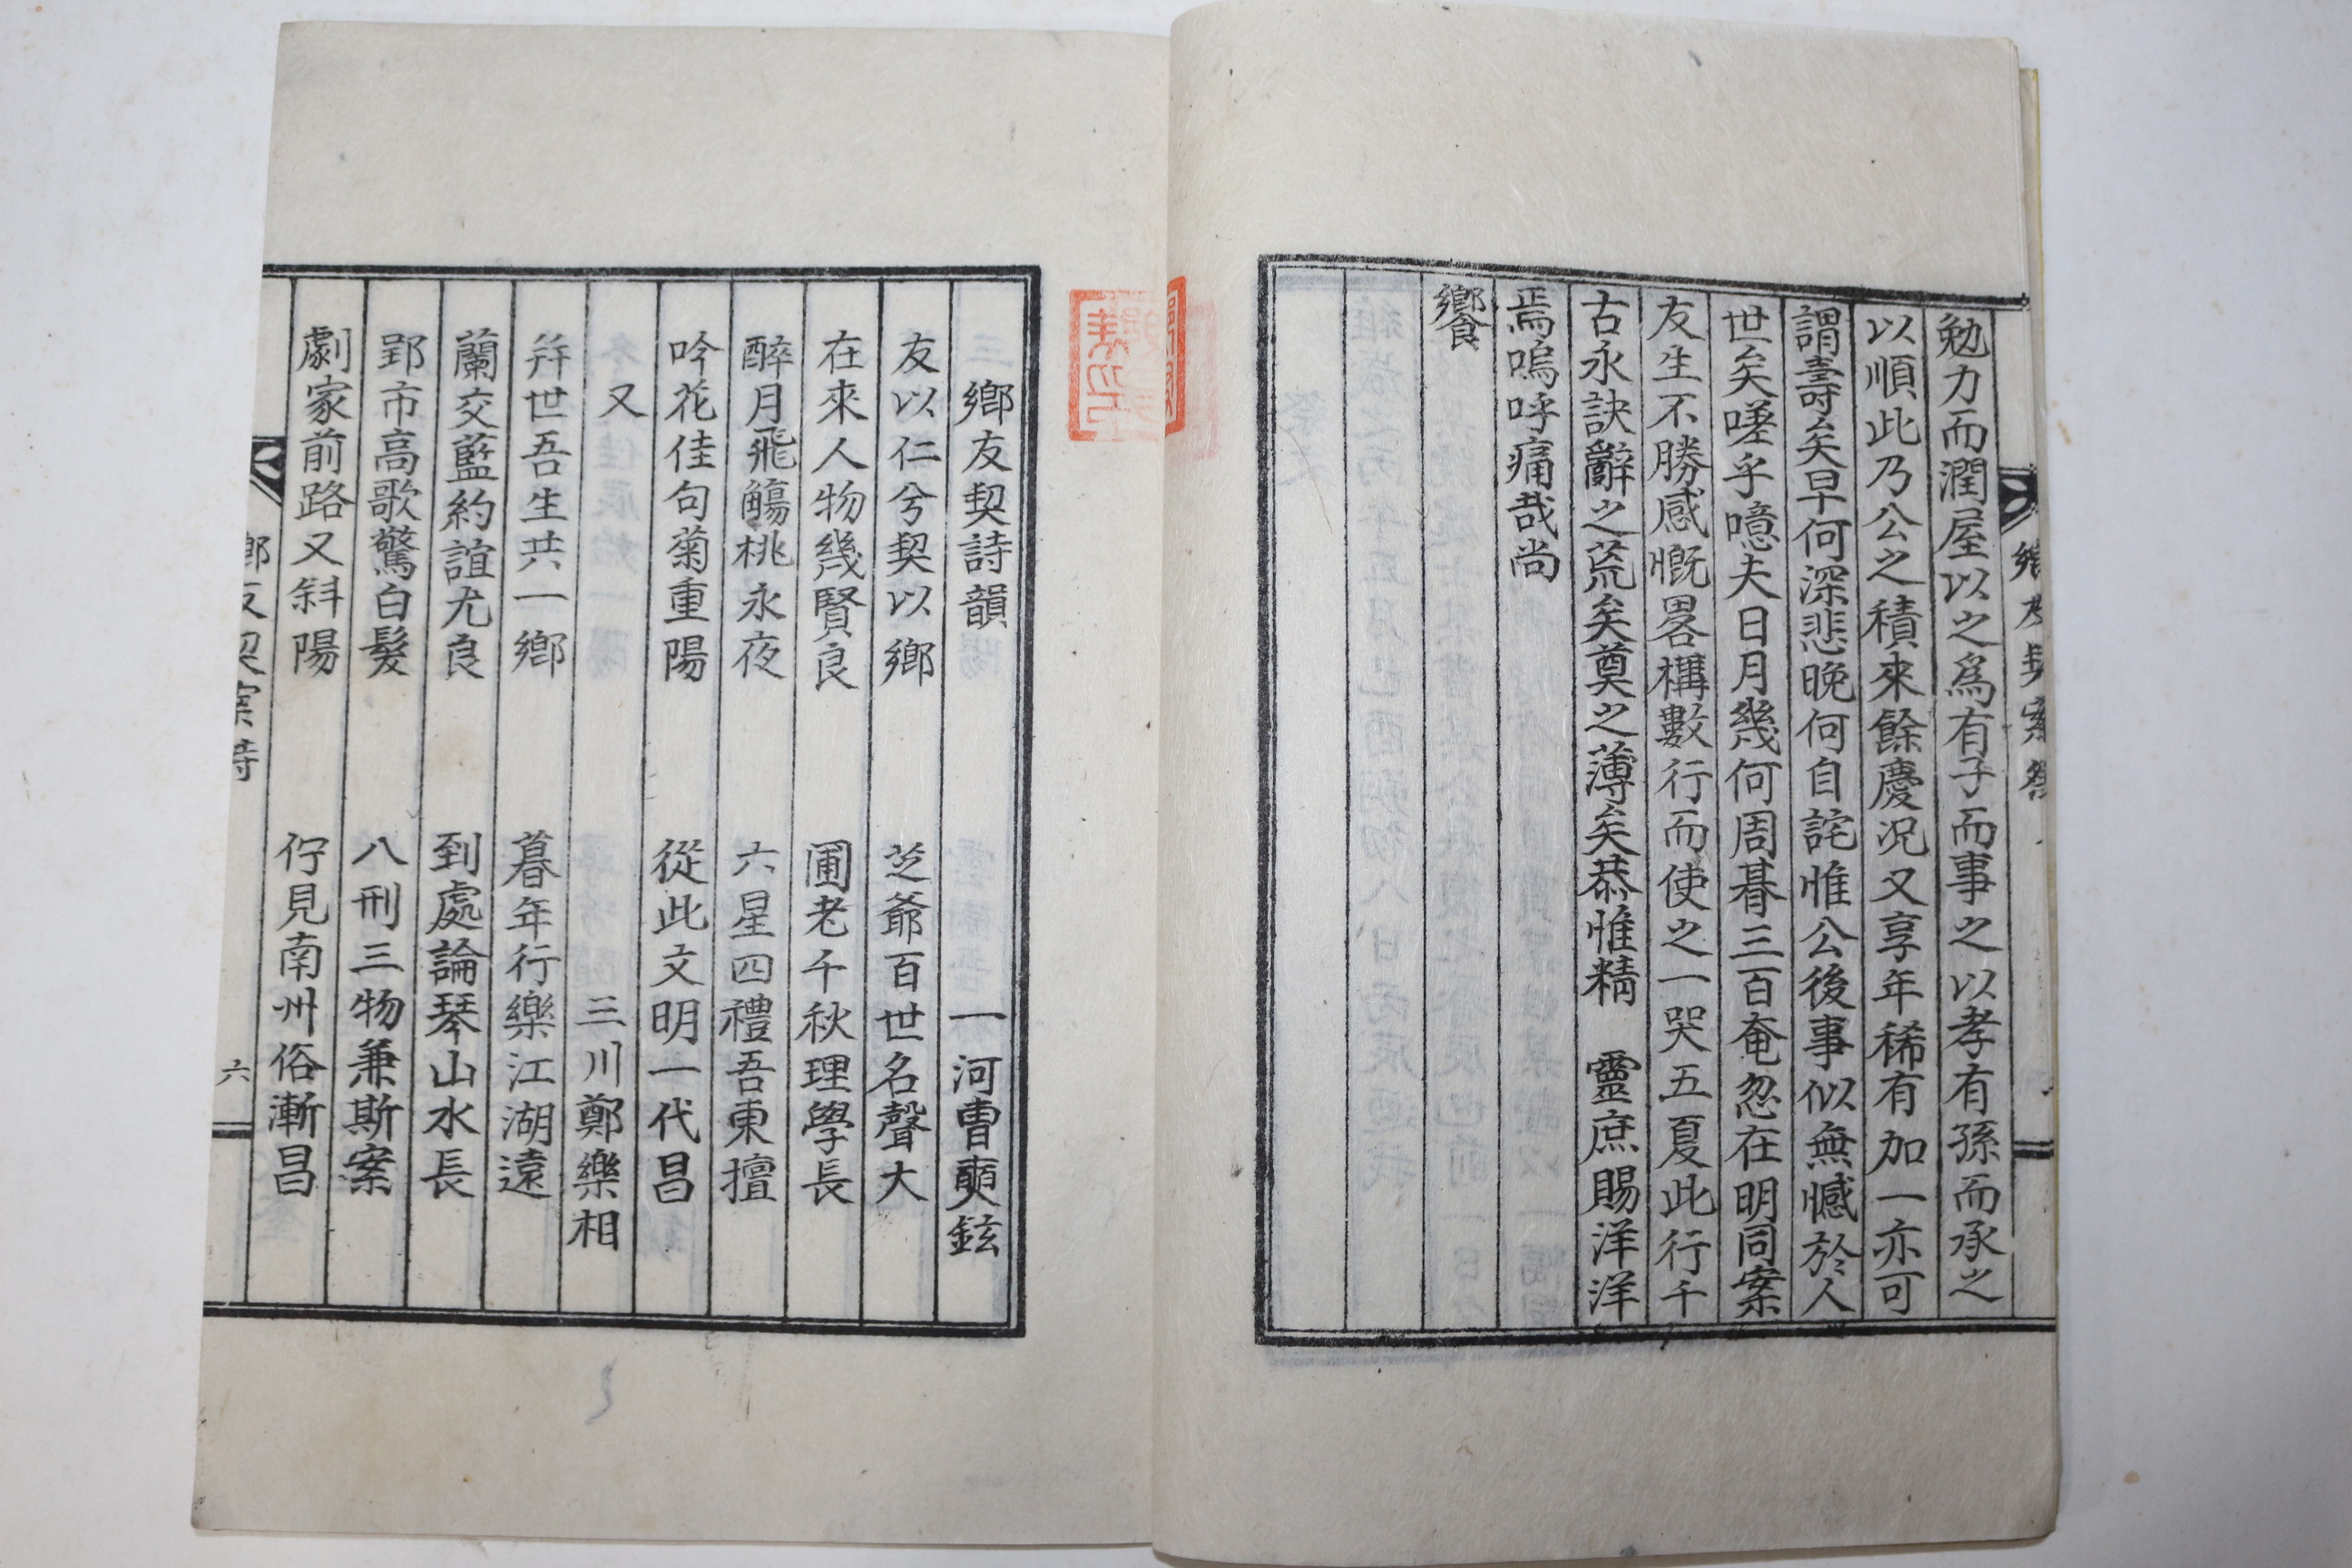 勉力而潤屋以之爲有子而事之以孝有孫而承之
以順此乃公之積來餘慶况又享年稀有加一亦可
謂壽矣早何深悲晚何自詫惟公後事似無憾於人
世矣嗟乎噫夫日月幾何周朞三百奄忽在明同案
友生不勝感慨畧構數行而使之一哭五夏此行千
古永訣辭之荒矣奠之薄矣恭惟精 靈庶賜洋洋
焉嗚呼痛哉尚
饗
鄉友契詩韻 一河曺奭鉉
友以仁兮契以鄉 芝爺百世名聲大
在來人物幾賢良 圃老千秋理學長
醉月飛觴桃永夜 六星四禮吾東擅
吟花佳句菊重陽 從此文明一代昌
又 三川鄭樂相
幷世吾生共一鄉 暮年行樂江湖遠
蘭交藍約誼尤良 到處論琴山水長
郢市高歌驚白髮 八刑三物兼斯案
劇家前路又斜陽 佇見南州俗漸昌
六